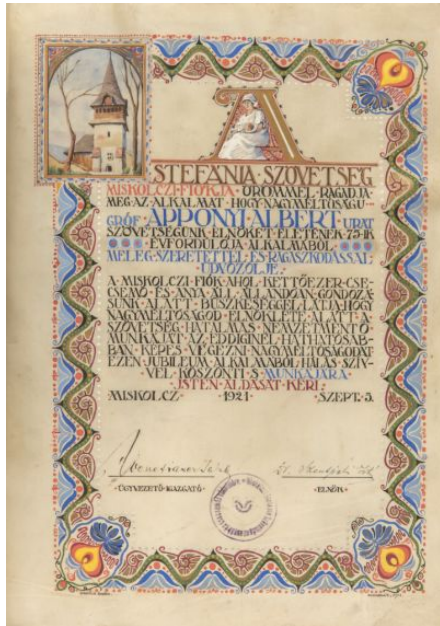 A
STEFÁNIA·SZÖVETSÉG
MISKOLCZI·FIÓKJA·ÖRÖMMEL·RAGADJA
MEG·AZ·ALKALMAT·HOGY·NAGYMÉLTÓSÁGÚ
GRÓF·APPONYI·ALBERT·URAT
SZÖVETSÉGÜNK·ELNÖKÉT·ÉLETÉNEK·75-IK
ÉVFORDULÓJA·ALKALMÁBÓL
MELEG·SZERETETTEL·ÉS·RAGASZKODÁSSAL
ÜDVÖZÖLJE·
A·MISKOLCZI·FIÓK·AHOL·KETTŐEZER·CSE-
CSEMŐ·ÉS·ANYA·ÁLL·ÁLLANDÓAN·GONDOZÁ-
SUNK·ALATT·BÜSZKESÉGGEL·LÁTJA·HOGY
NAGYMÉLTÓSÁGOD·ELNÖKLETE·ALATT·A
SZÖVETSÉG·HATALMAS·NEMZETMENTŐ
MUNKÁJÁT·AZ·EDDIGINÉL·HATHATÓSAB-
BAN·KÉPES·VÉGEZNI·NAGYMÉLTÓSÁGODAT
EZEN·JUBILEUM·ALKALMÁBÓL·HÁLÁS·SZÍV-
VEL·KÖSZÖNTI·S·MUNKÁJÁRA
ISTEN·ÁLDÁSÁT·KÉRI·
MISKOLCZ· 1921· SZEPT·5.
·ÜGYVEZETŐ·IGAZGATÓ· ·ELNÖK·